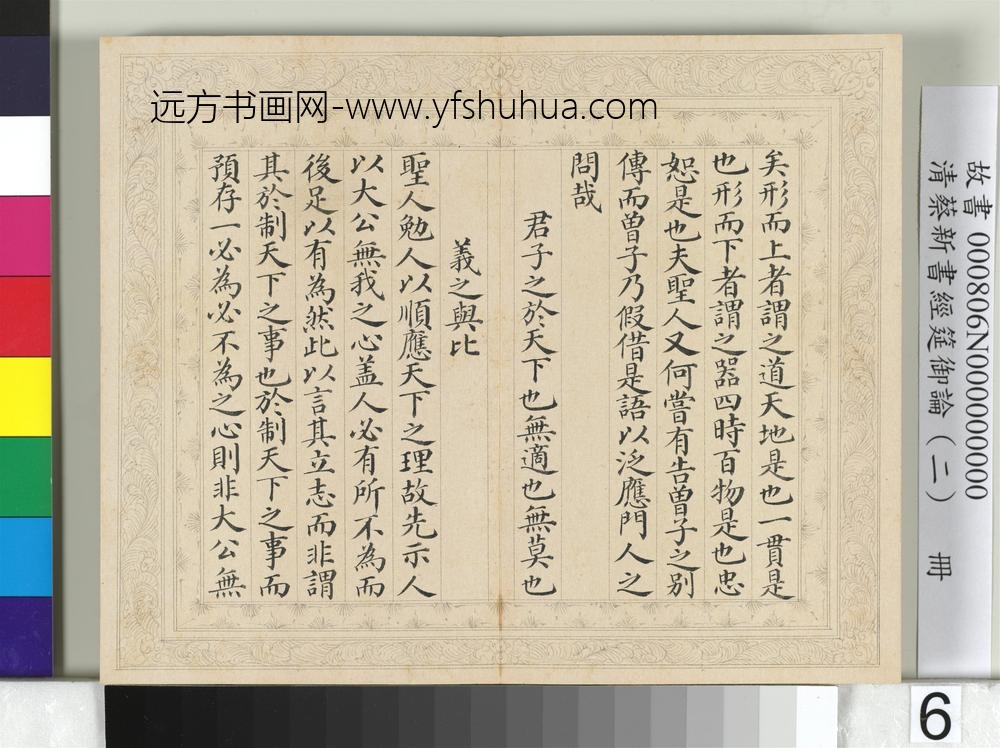 远方书画网-www.yfshuhua.com
矣形而上者謂之道天地是也一貫是
也形而下者謂之器四時百物是也忠
恕是也夫聖人又何嘗有告曾子之别
傳而曾子乃假借是語以泛應門人之
問哉
君子之於天下也無適也無莫也
義之與比
聖人勉人以順應天下之理故先示人
以大公無我之心盖人必有所不為而
後足以有為然此以言其立志而非謂
其於制天下之事也於制天下之事而
預存一必為必不為之心則非大公無
故書000806N000000000
清蔡新書經筵御論(二) 冊
6